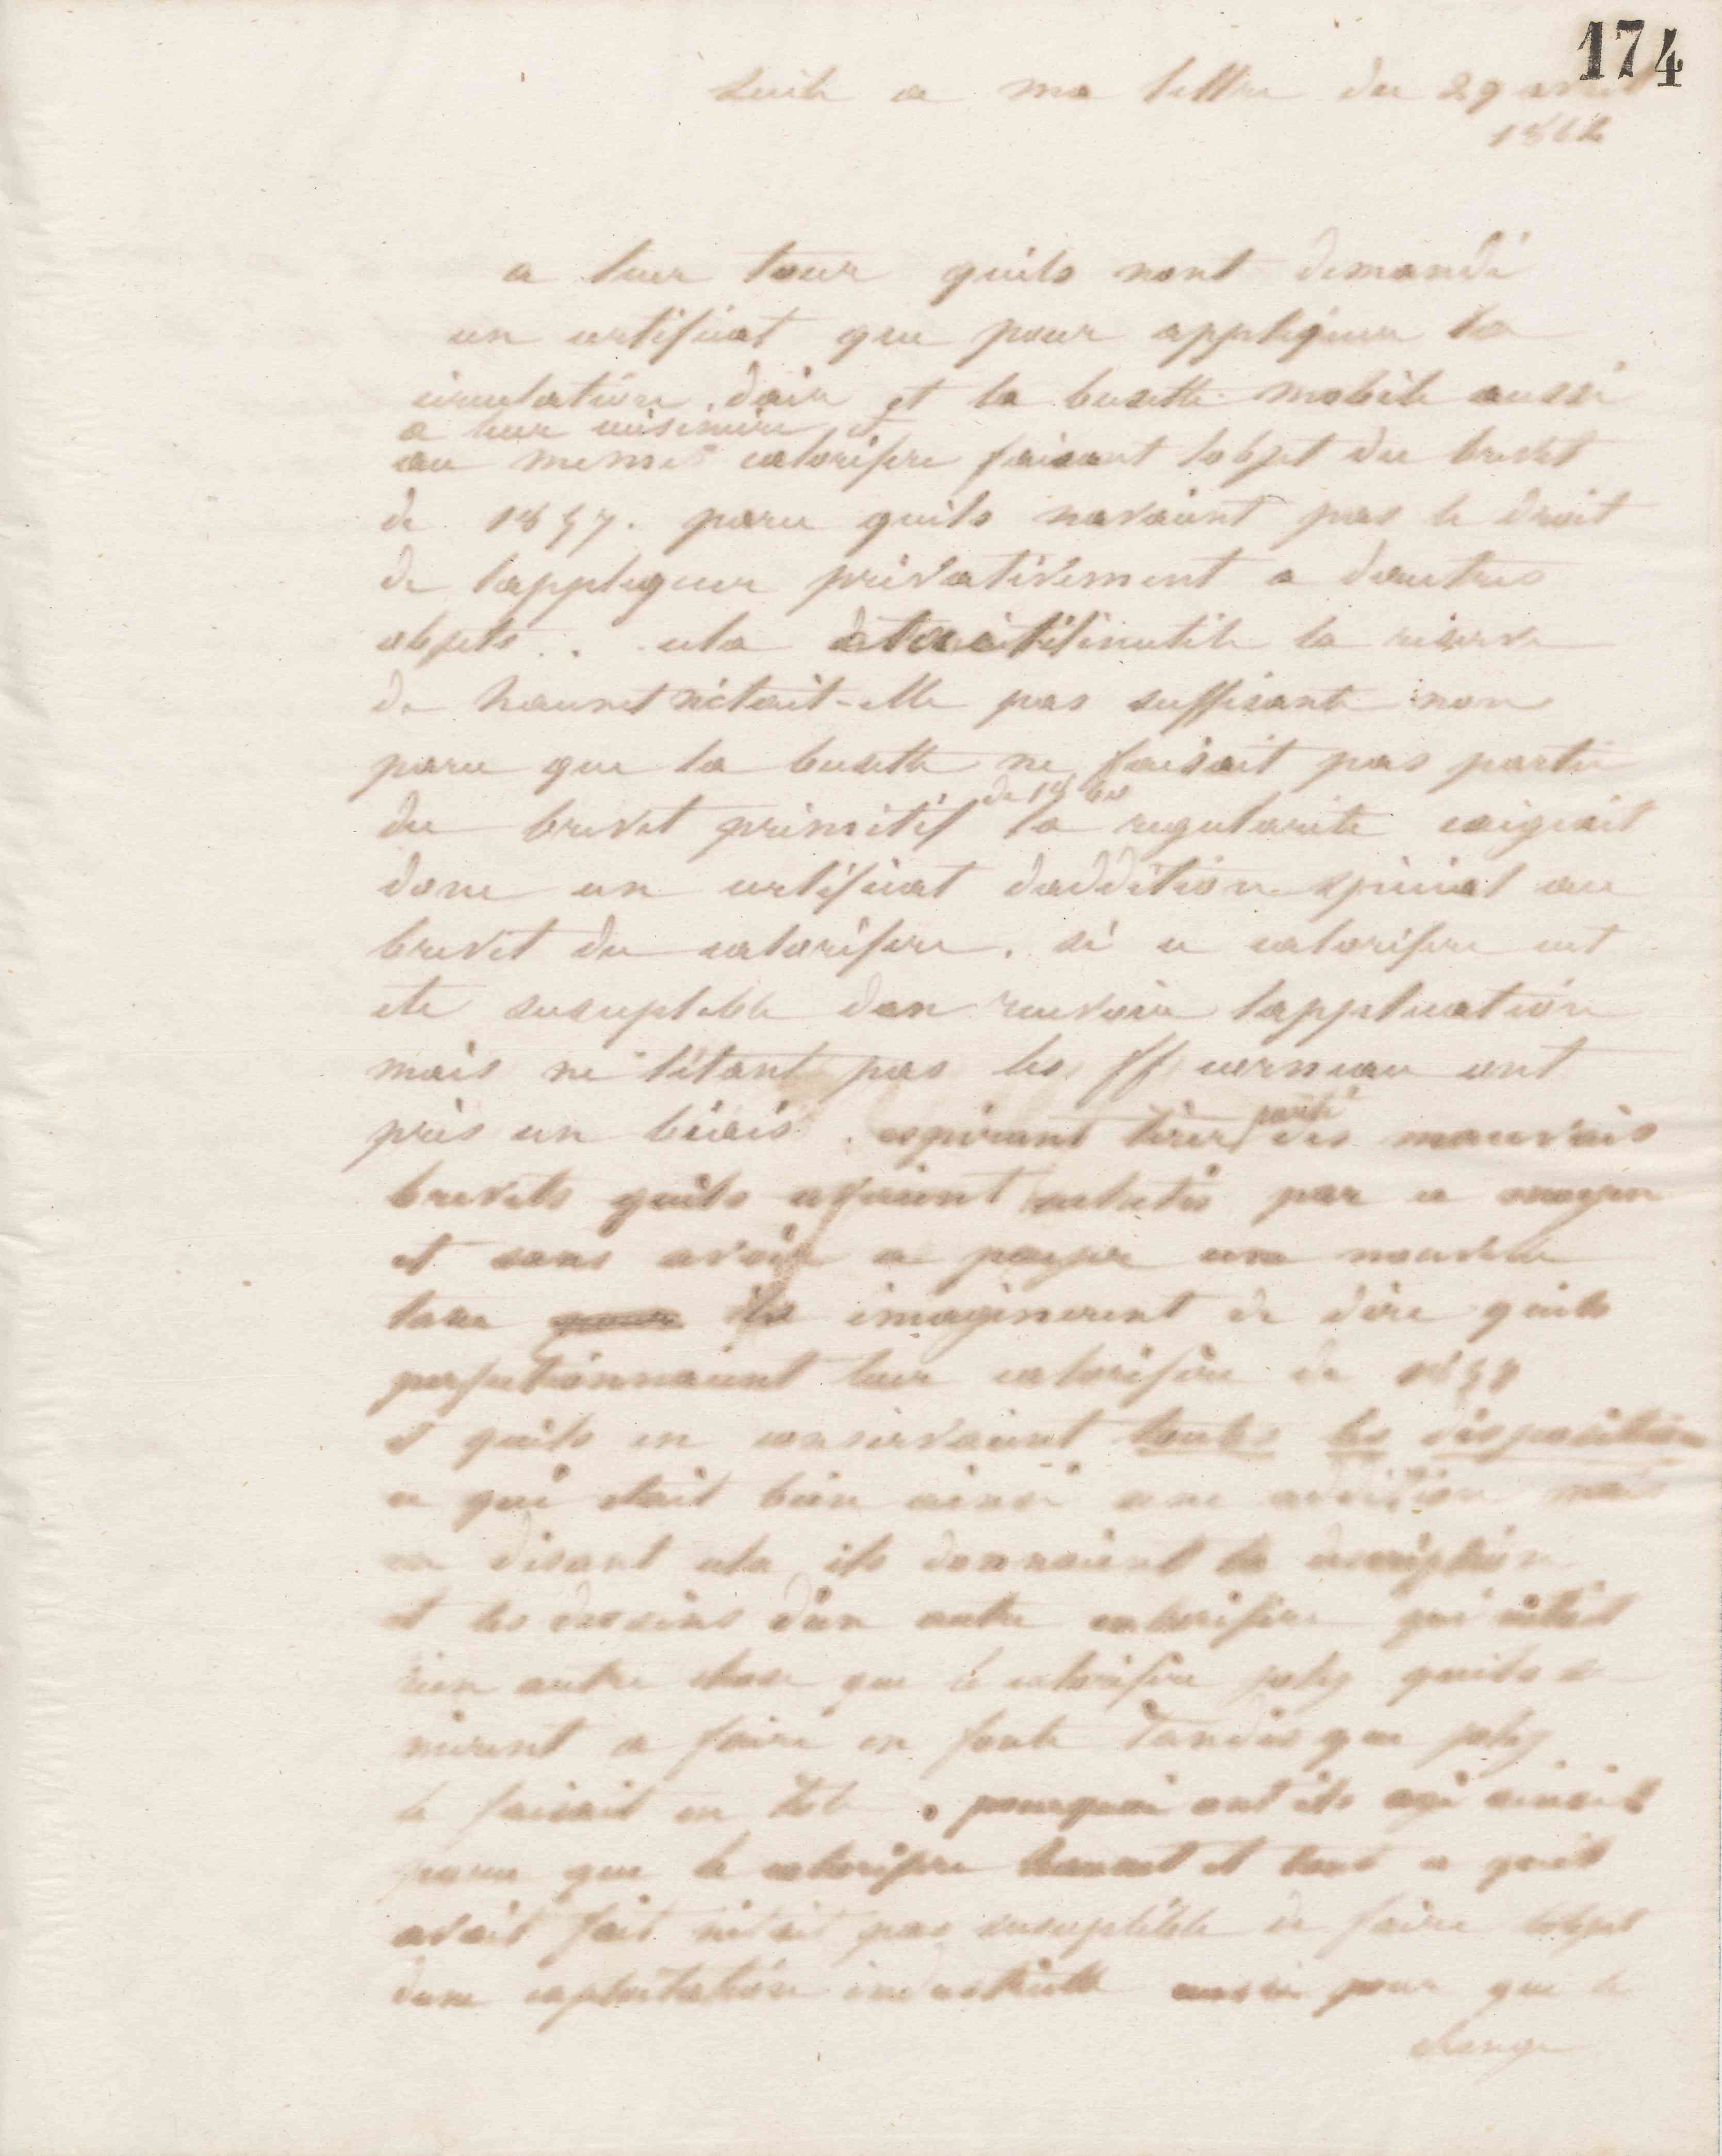 174
Suite a ma lettre du 29 avril
1862
a leur tour quils nont demandé
un certificat que pour appliquer la
circulation dair et la busette mobile aussi
a leur cuisiniere et
au meme calorifere faisant lobjet du brevet
de 1857. parce quils navaient pas le droit
de lappliquer privativement a dautres
objets . . cela était-il inutile la reserve
de hauret n'etait-elle pas suffisante non
parce que la busette ne faisait pas partie
du brevet primitif de 1860 la regularité exigeait
donc un certificat daddition special au
brevet du calorifere. si ce calorifere eut
ete susceptible den recevoir lapplication
mais ne l'etant pas les ff cerneau ont
pris un biais. esperant tirer parti des mauvais
brevets quils avaient achetés par ce moyen
et sans avoir a payer une nouvelle
taxe ils imaginerent de dire quils
perfectionnaient leur calorifere de 1857
et quils en conservaient toutes les dispositions
ce qui etait bien ainsi une addition mais
en disant cela ils donnaient la description
et les dessins d'un autre calorifere qui nétait
rien autre chose que le calorifere joly quils se
mirent a faire en fonte Tandis que joly
le faisait en tole. pourquoi ont ils agi ainsi
parce que le calorifere hauret et tout ce quil
avait fait nétait pas susceptible de faire lobjet
dune exploitation industrielle aussi pour que le
change